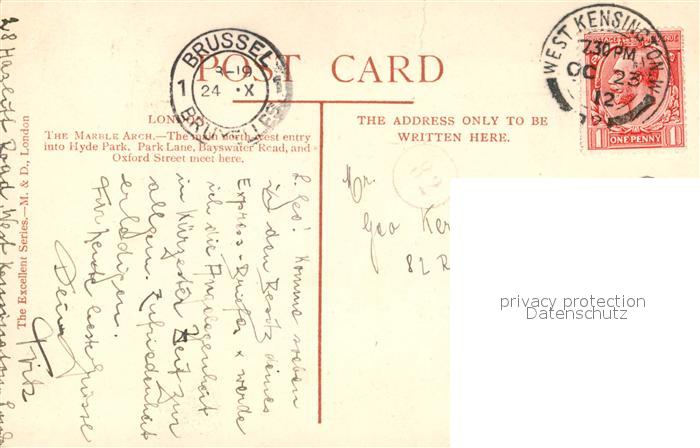 POST CARD
LONDON
THE MARBLE ARCH.—The main north-west entry
into Hyde Park. Park Lane, Bayswater Road, and
Oxford Street meet here.
THE ADDRESS ONLY TO BE
WRITTEN HERE.
The Excellent Series.—M. & D., London
BRUSSEL
1
8-19
24 X
BRUXELLES
WEST KENSINGTON.W
7.30 PM
OC 23
12
1 ONE PENNY 1
82
Mr.
Geo Ker
82 R
L. Geo! Komme soeben
in den Besitz deines
Express-Briefes & werde
ich die Angelegenheit
in kürzester Zeit zur
allgem. Zufriedenheit
erledigen.
Für heute beste Grüsse
Dein
Fritz
28 Road, West Kensington
privacy protection
Datenschutz